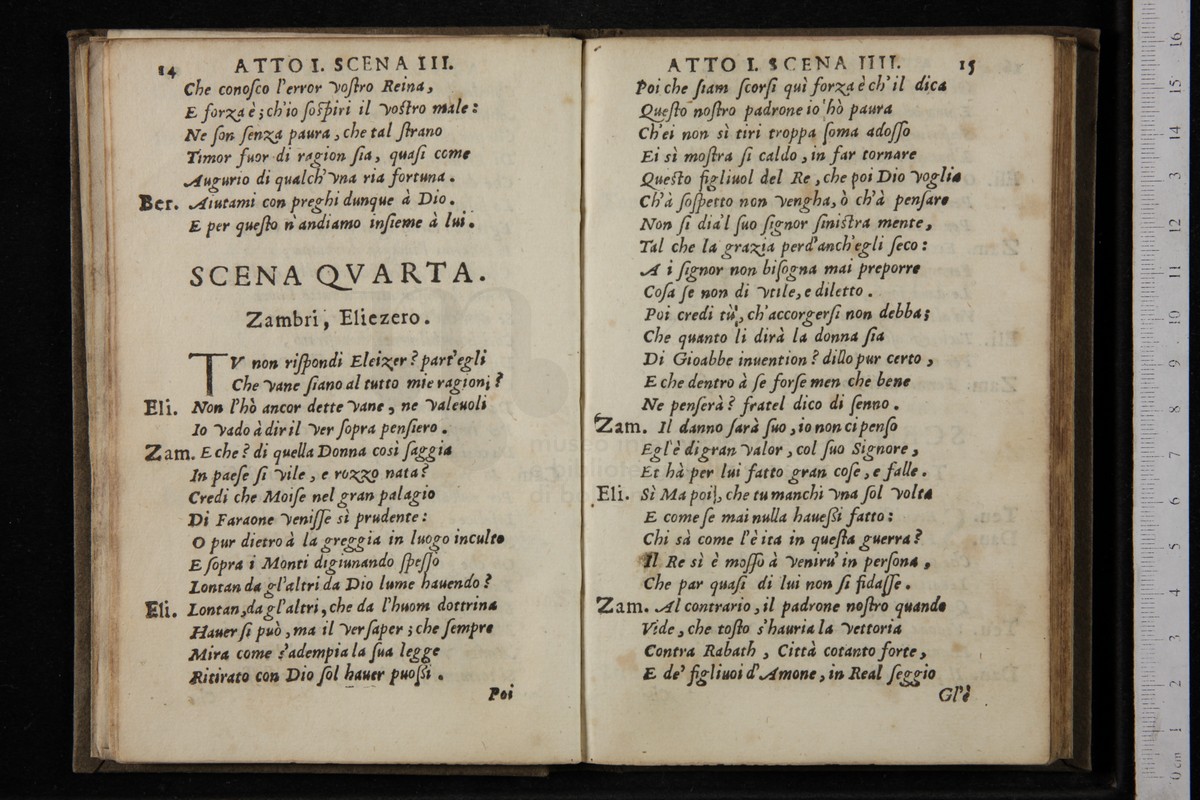 14 ATTO I. SCENA III.
Che conoſco l'error voſtro Reina,
E forza è; ch'io ſoſpiri il voſtro male:
Ne ſon ſenza paura, che tal ſtrano
Timor fuor di ragion ſia, quaſi come
Augurio di qualch'vna ria fortuna.
Ber. Aiutami con preghi dunque à Dio.
E per queſto n'andiamo inſieme à lui.
SCENA QVARTA.
Zambri, Eliezero.
TV non riſpondi Eleizer? part'egli
Che vane ſiano al tutto mie ragioni?
Eli. Non l'hò ancor dette vane, ne valeuoli
Io vado à dir il ver ſopra penſiero.
Zam. E che? di quella Donna così ſaggia
In paeſe ſi vile, e rozzo nata?
Credi che Moiſe nel gran palagio
Di Faraone veniſſe sì prudente:
O pur dietro à la greggia in luogo inculto
E ſopra i Monti digiunando ſpeſſo
Lontan da gl'altri da Dio lume hauendo?
Eli. Lontan, da gl'altri, che da l'huom dottrina
Hauer ſi può, ma il ver ſaper; che ſempre
Mira come s'adempia la ſua legge
Ritirato con Dio ſol hauer puoſſi.
Poi
ATTO I. SCENA IIII. 15
Poi che ſiam ſcorſi quì forza è ch'il dica
Queſto noſtro padrone io hò paura
Ch'ei non sì tiri troppa ſoma adoſſo
Ei sì moſtra ſi caldo, in far tornare
Queſto figliuol del Re, che poi Dio voglia
Ch'à ſoſpetto non vengha, ò ch'à penſare
Non ſi dia'l ſuo ſignor ſiniſtra mente,
Tal che la grazia perd'anch'egli ſeco:
A i ſignor non biſogna mai preporre
Coſa ſe non di vtile, e diletto.
Poi credi tù, ch'accorgerſi non debba;
Che quanto li dirà la donna ſia
Di Gioabbe inuention? dillo pur certo,
E che dentro à ſe forſe men che bene
Ne penſerà? fratel dico di ſenno.
Zam. Il danno ſarà ſuo, io non ci penſo
Egl'è di gran valor, col ſuo Signore,
Et hà per lui fatto gran coſe, e falle.
Eli. Sì Ma poi, che tu manchi vna ſol volta
E come ſe mai nulla haueſſi fatto:
Chi sà come l'è ita in queſta guerra?
Il Re sì è moſſo à veniru' in perſona,
Che par quaſi di lui non ſi fidaſſe.
Zam. Al contrario, il padrone noſtro quando
Vide, che toſto s'hauria la vettoria
Contra Rabath, Città cotanto forte,
E de' figliuoi d'Amone, in Real ſeggio
Gl'è